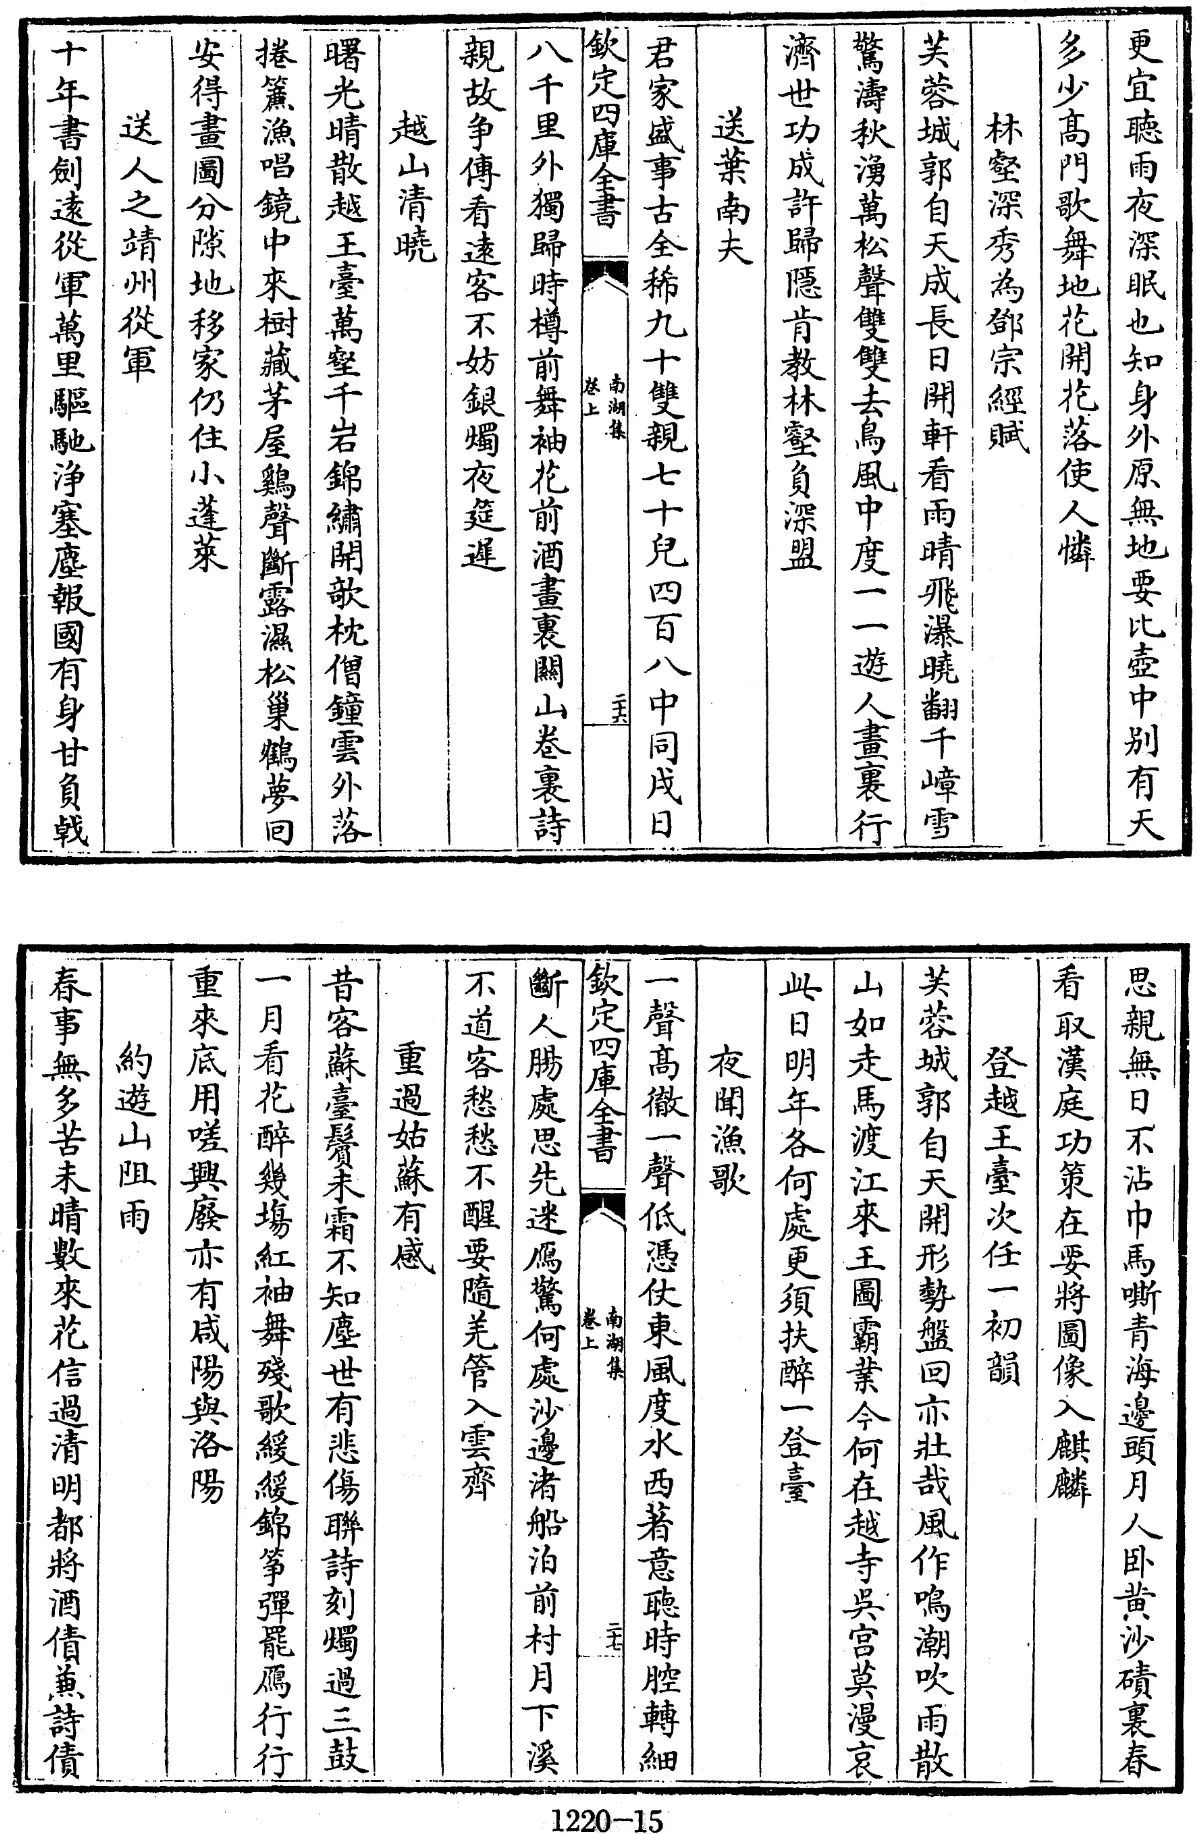 更宜聽雨夜深眠也知身外原無地要比壺中别有天
多少髙門歌舞地花開花落使人憐
林壑深秀為鄧宗經賦
芙蓉城郭自天成長日開軒看雨晴飛瀑曉翻千嶂雪
驚濤秋湧萬松聲雙雙去鳥風中度一一遊人畫裏行
濟世功成許歸隱肯教林壑負深盟
送葉南夫
君家盛事古全稀九十雙親七十兒四百八中同戌日
欽定四庫全書
南湖集
卷上
二十六
八千里外獨歸時樽前舞袖花前酒畫裏關山卷裏詩
親故爭傳看遠客不妨銀燭夜筵遲
越山清曉
曙光晴散越王臺萬壑千岩錦繡開欹枕僧鐘雲外落
捲簾漁唱鏡中來樹藏茅屋鷄聲斷露濕松巢鶴夢回
安得畫圖分隙地移家仍住小蓬萊
送人之靖州從軍
十年書劍遠從軍萬里驅馳浄塞塵報國有身甘負戟
思親無日不沾巾馬嘶青海邊頭月人卧黄沙磧裏春
看取漢庭功策在要將圖像入麒麟
登越王臺次任一初韻
芙蓉城郭自天開形勢盤回亦壯哉風作鳴潮吹雨散
山如走馬渡江來王圖霸業今何在越寺吳宫莫漫哀
此日明年各何處更須扶醉一登臺
夜聞漁歌
一聲髙徹一聲低憑仗東風度水西著意聽時腔轉細
欽定四庫全書
南湖集
卷上
二十七
斷人腸處思先迷鴈驚何處沙邊渚船泊前村月下溪
不道客愁愁不醒要隨羌管入雲齊
重過姑蘇有感
昔客蘇臺鬢未霜不知塵世有悲傷聯詩刻燭過三鼓
一月看花醉幾塲紅袖舞殘歌緩緩錦筝彈罷鴈行行
重來底用嗟興廢亦有咸陽與洛陽
約遊山阻雨
春事無多苦未晴數來花信過清明都將酒債兼詩債
1220-15